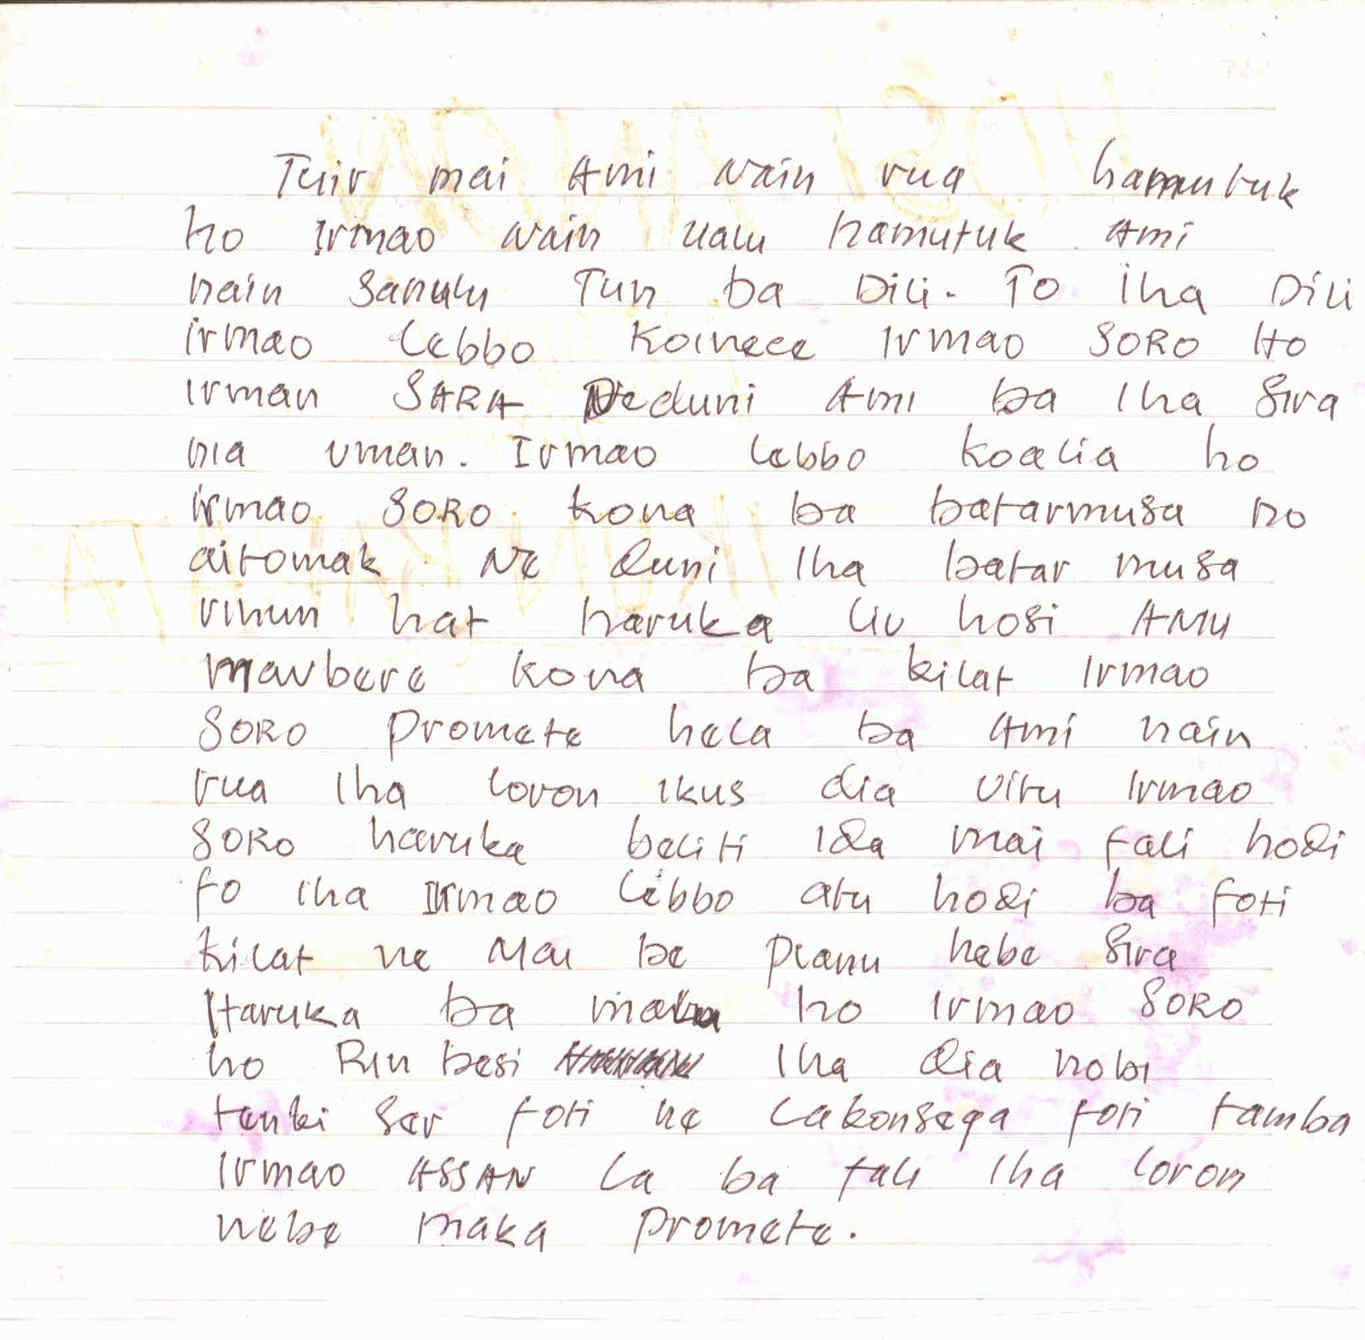 Tuir mai Ami Nain rua hamutuk
ho Irmao Nain ualu hamutuk Ami
nain Sanulu Tun ba Dili. To iha Dili
irmao Lebbo Koinece Irmao SORO Ho
Irman SARA Neduni Ami ba iha Sira
nia uman. Irmao Lebbo koalia ho
irmao SORO kona ba batarmusa no
aitomak Ne duni iha batar musa
rihun hat haruka liu hosi AMU
maubere kona ba kilat Irmao
SORO Promete hela ba Ami nain
rua iha loron ikus dia vitu Irmao
SORO haruka beliti ida mai fali hodi
fo iha Irmao Lebbo atu hodi ba foti
kilat ne Mai be Planu nebe Sira
Haruka ba ho Irmao SORO
ho Rin besi iha dia nobi
tenki ser foti ne Lakonsega foti tamba
Irmao ASSAN La ba fali iha loron
nebe maka promete.